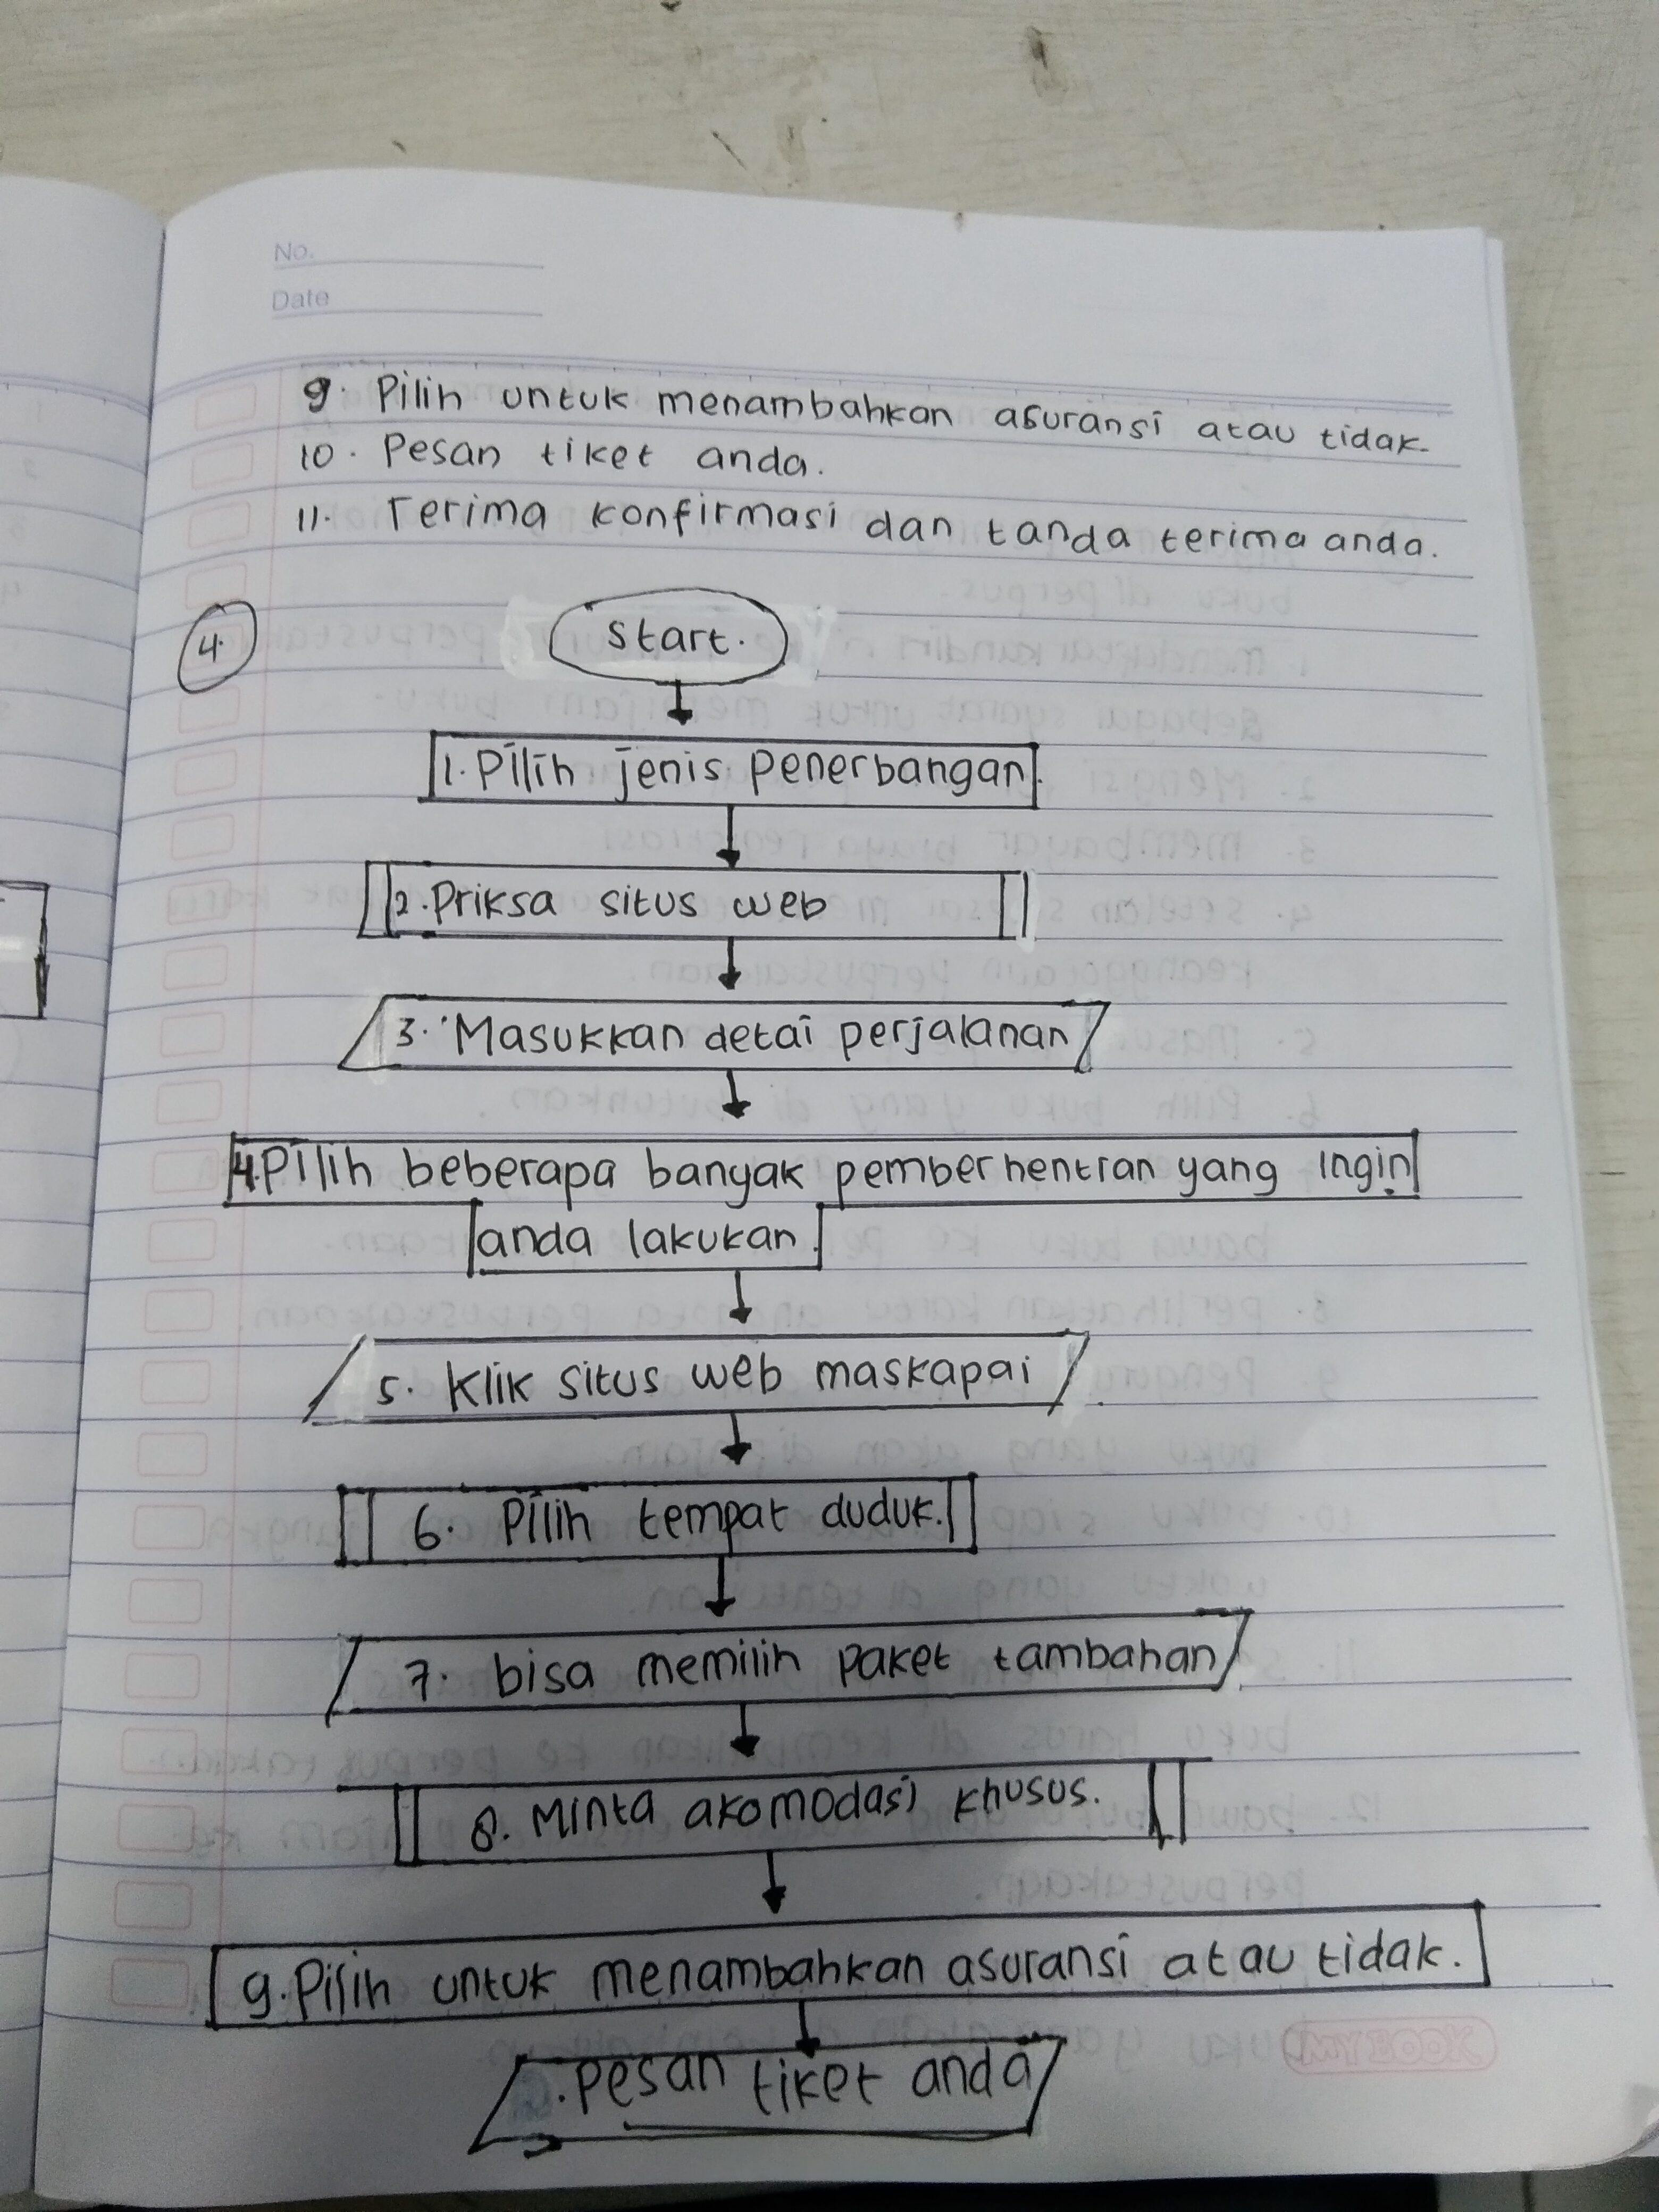 No.
Date
9. Pilih untuk menambahkan asuransi atau tidak.
10. Pesan tiket anda.
11. Terima konfirmasi dan tanda terima anda.
4.
Start.
1. Pilih jenis Penerbangan.
2. Priksa situs web
3. Masukkan detai perjalanan
4. Pilih beberapa banyak pemberhentian yang Ingin
anda lakukan.
5. Klik situs web maskapai
6. Pilih tempat duduk.
7. bisa memilih paket tambahan
8. Minta akomodasi khusus.
9. Pilih untuk menambahkan asuransi atau tidak.
. Pesan tiket anda